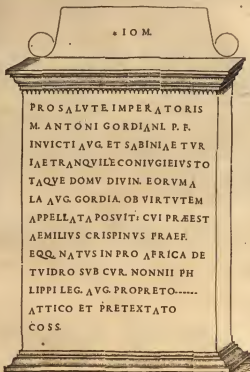 • I O M.
PRO SALVTE. IMPERATORIS
M. ANTONI GORDIANI. P. F.
INVICTI AVG. ET SABINIAE TVR
IAE TRANQVILE CONIVGI EIVS TO
TAQVE DOMV DIVIN. EORVM A
LA AVG. GORDIA. OB VIRTVTEM
APPELLATA POSVIT: CVI PRÆEST
AEMILIVS CRISPINVS PRAEF.
EQQ. NATVS IN PRO AFRICA DE
TVIDRO SVB CVR. NONNII PH
LIPPI LEG. AVG. PROPRETO------
ATTICO ET PRETEXTATO
COSS.